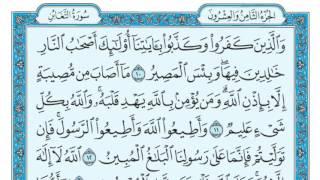 الجزء الثامن والعشرون سورة التغابن
وَٱلَّذِينَ كَفَرُواْ وَكَذَّبُواْ بِـَٔايَٰتِنَآ أُوْلَٰٓئِكَ أَصۡحَٰبُ ٱلنَّارِ
خَٰلِدِينَ فِيهَاۖ وَبِئۡسَ ٱلۡمَصِيرُ ١٠ مَآ أَصَابَ مِن مُّصِيبَةٍ
إِلَّا بِإِذۡنِ ٱللَّهِۗ وَمَن يُؤۡمِنۢ بِٱللَّهِ يَهۡدِ قَلۡبَهُۥۚ وَٱللَّهُ بِكُلِّ
شَيۡءٍ عَلِيمٞ ١١ وَأَطِيعُواْ ٱللَّهَ وَأَطِيعُواْ ٱلرَّسُولَۚ فَإِن
تَوَلَّيۡتُمۡ فَإِنَّمَا عَلَىٰ رَسُولِنَا ٱلۡبَلَٰغُ ٱلۡمُبِينُ ١٢ ٱللَّهُ لَآ إِلَٰهَ